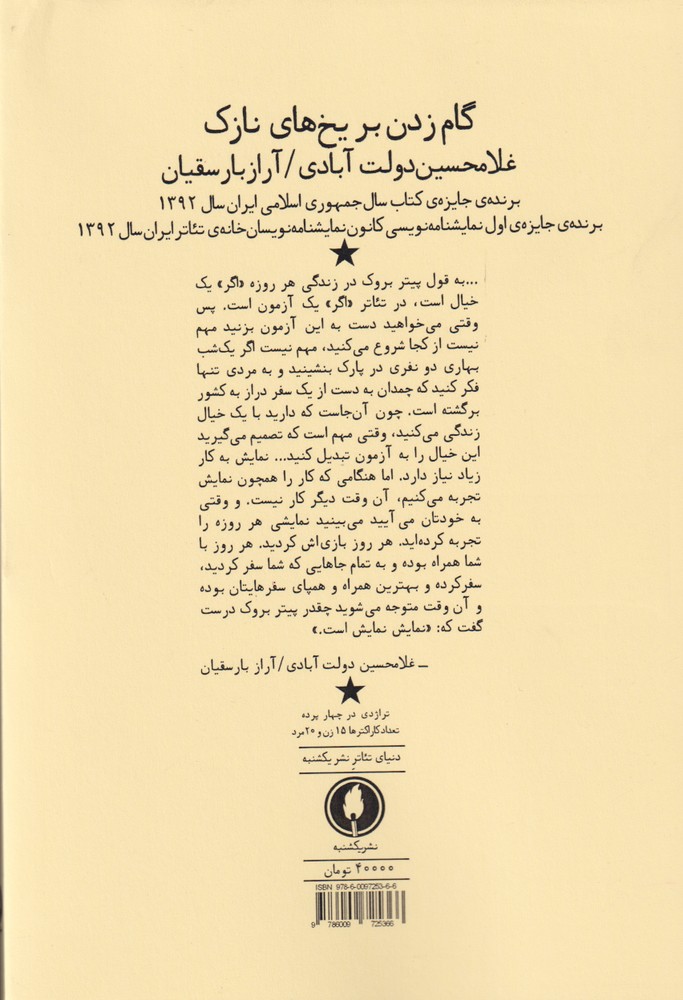 گام زدن بر یخ‌های نازک
غلامحسین دولت آبادی / آراز بارسقیان
برنده‌ی جایزه‌ی کتاب سال جمهوری اسلامی ایران سال ۱۳۹۲
برنده‌ی جایزه‌ی اول نمایشنامه‌نویسی کانون نمایشنامه‌نویسان خانه‌ی تئاتر ایران سال ۱۳۹۲
...به قول پیتر بروک در زندگی هر روزه «اگر» یک
خیال است، در تئاتر «اگر» یک آزمون است. پس
وقتی می‌خواهید دست به این آزمون بزنید مهم
نیست از کجا شروع می‌کنید، مهم نیست اگر یک‌شب
بهاری دو نفری در پارک بنشینید و به مردی تنها
فکر کنید که چمدان به دست از یک سفر دراز به کشور
برگشته است. چون آن‌جاست که دارید با یک خیال
زندگی می‌کنید، وقتی مهم است که تصمیم می‌گیرید
این خیال را به آزمون تبدیل کنید... نمایش به کار
زیاد نیاز دارد. اما هنگامی که کار را همچون نمایش
تجربه می‌کنیم، آن وقت دیگر کار نیست. و وقتی
به خودتان می‌آیید می‌بینید نمایشی هر روزه را
تجربه کرده‌اید. هر روز بازی‌اش کردید. هر روز با
شما همراه بوده و به تمام جاهایی که شما سفر کردید،
سفرکرده و بهترین همراه و همپای سفرهایتان بوده
و آن وقت متوجه می‌شوید چقدر پیتر بروک درست
گفت که: «نمایش نمایش است.»
ــ غلامحسین دولت آبادی / آراز بارسقیان
تراژدی در چهار پرده
تعداد کاراکترها ۱۵ زن و ۲۰ مرد
دنیای تئاترِ نشر یکشنبه
نشر یکشنبه
۴۰۰۰۰ تومان
ISBN 978-6-0097253-6-6
9 786009 725366